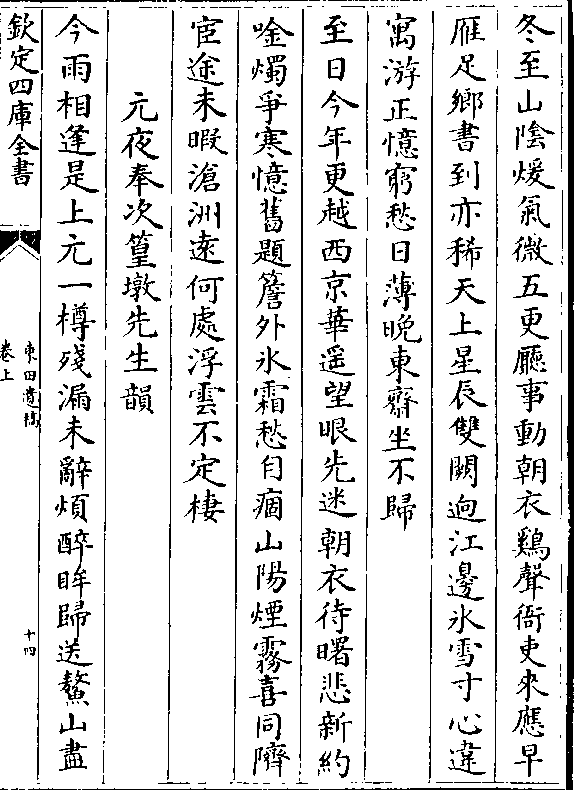 冬至山陰煖氣微五更廳事動朝衣鷄聲衙吏來應早
雁足鄉書到亦稀天上星辰雙闕逈江邊氷雪寸心違
寓游正憶窮愁日薄晩東齋坐不歸
至日今年更越西京華遥望眼先迷朝衣待曙悲新約
唫燭爭寒憶舊題簷外氷霜愁自痼山陽煙霧喜同隮
宦途未暇滄洲逺何處浮雲不定棲
元夜奉次篁墩先生韻
今雨相逢是上元一樽殘漏未辭煩醉眸歸送鰲山盡
欽定四庫全書
東田遺稿
卷上
十四